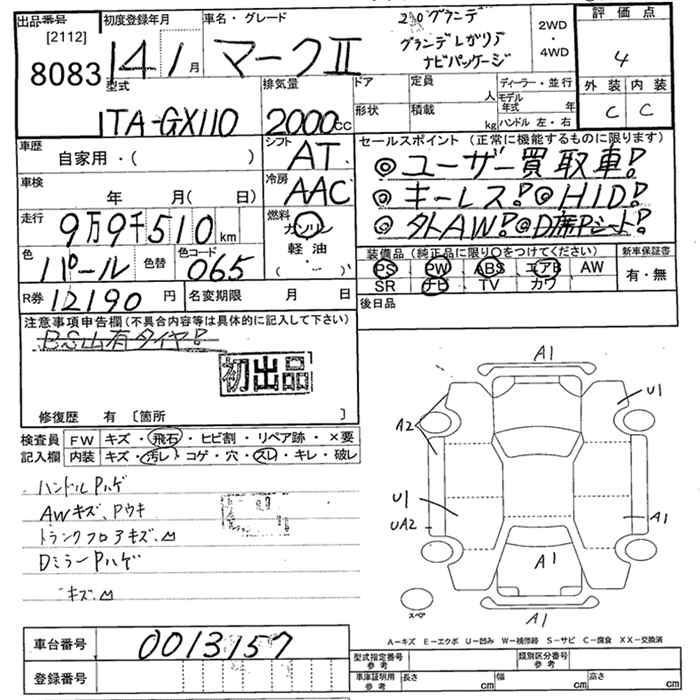 出品番号 [2112] 8083
初度登録年月 14 1月
車名・グレード マークII
2.0グランデ
グランデレガリア
ナビパッケージ
2WD ・ 4WD
評価点 4
外装 内装
C C
型式 TA-GX110
排気量 2000cc
ドア 定員 人
形状 積載 kg
ディーラー・並行
モデル年式 年
ハンドル 左・右
車歴 自家用・( )
シフト AT
セールスポイント (正常に機能するものに限ります)
◎ユーザー買取車!
◎キーレス!◎HID!
◎外AW!◎D席Pシート!
車検 年 月(日)
冷房 AAC
走行 9万9千510km
燃料 ガソリン
軽油
・
( )
色 パール 色替 色コード 065
装備品 (純正品に限り○をつけてください)
新車保証書
PS PW ABS エアB AW
SR ナビ TV カワ
有・無
R券 12190円 名変期限 月 日
後日品
注意事項申告欄 (不具合内容等は具体的に記入して下さい)
BS山有タイヤ!
初出品
修復歴 有 〔箇所 〕
検査員 FW キズ・飛石・ヒビ割・リペア跡・×要
記入欄 内装 キズ・汚レ・コゲ・穴・スレ・キレ・破レ
ハンドルPハゲ
AWキズ、Pウキ
トランクフロアキズ、凹
DミラーPハゲ
キズ、凹
A1
U1
A2
U1
UA2
A1
A1
スペア
A1
A-キズ E-エクボ U-凹み W-補修跡 S-サビ C-腐食 XX-交換済
車台番号 0013157
登録番号
型式指定番号 参考
類別区分番号 参考
車庫証明用 参考 長さ cm 幅 cm 高さ cm